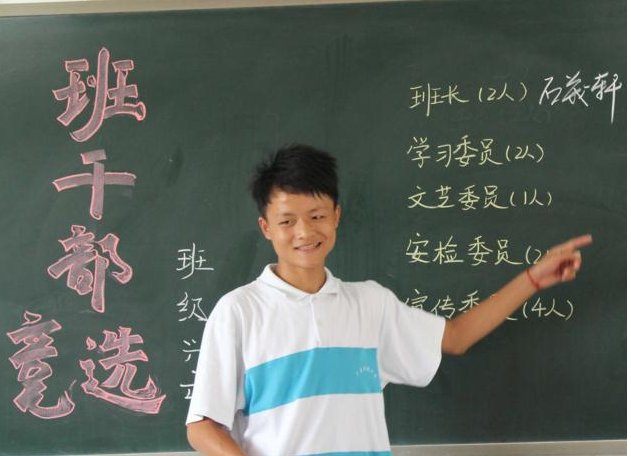 班干部
竞选
班级兴
班长(2人)
学习委员(2人)
文艺委员(1人)
安检委员(2
宣传委员(4人)